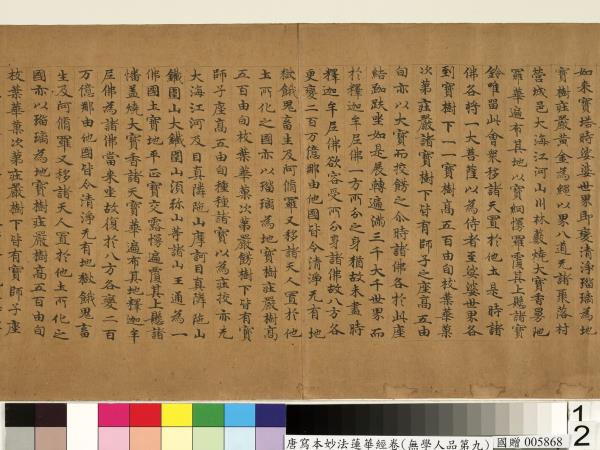 如來寶塔時娑婆世界即變清淨瑠璃為地
寶樹莊嚴黃金為繩以界八道无諸聚落村
營城邑大海江河山川林藪燒大寶香曼陁
羅華遍布其地以寶網幔羅覆其上懸諸寶
鈴唯留此會衆移諸天人置於他土是時諸
佛各將一大菩薩以為侍者至娑婆世界各
到寶樹下一一寶樹高五百由旬枝葉華菓
次第莊嚴諸寶樹下皆有師子之座高五由
旬亦以大寶而挍飾之尒時諸佛各於此座
結跏趺坐如是展轉遍滿三千大千世界而
於釋迦牟尼佛一方所分之身猶故未盡時
釋迦牟尼佛欲容受所分身諸佛故八方各
更變二百万億那由他國皆令清淨无有地
獄餓鬼畜生及阿脩羅又移諸天人置於他
土所化之國亦以瑠璃為地寶樹莊嚴樹高
五百由旬枝葉華菓次第嚴飾樹下皆有寶
師子座高五由旬種種諸寶以為莊挍亦无
大海江河及目真隣陁山摩訶目真隣陁山
鐵圍山大鐵圍山須弥山等諸山王通為一
佛國土寶地平正寶交露幔遍覆其上懸諸
幡蓋燒大寶香諸天寶華遍布其地釋迦牟
尼佛為諸佛當來坐故復於八方各變二百
万億那由他國皆令清淨无有地獄餓鬼畜
生及阿脩羅又移諸天人置於他土所化之
國亦以瑠璃為地寶樹莊嚴樹高五百由旬
枝葉華菓次第莊嚴樹下皆有寶師子座
唐寫本妙法蓮華經卷(無學人品第九)
國贈 005868
1
2